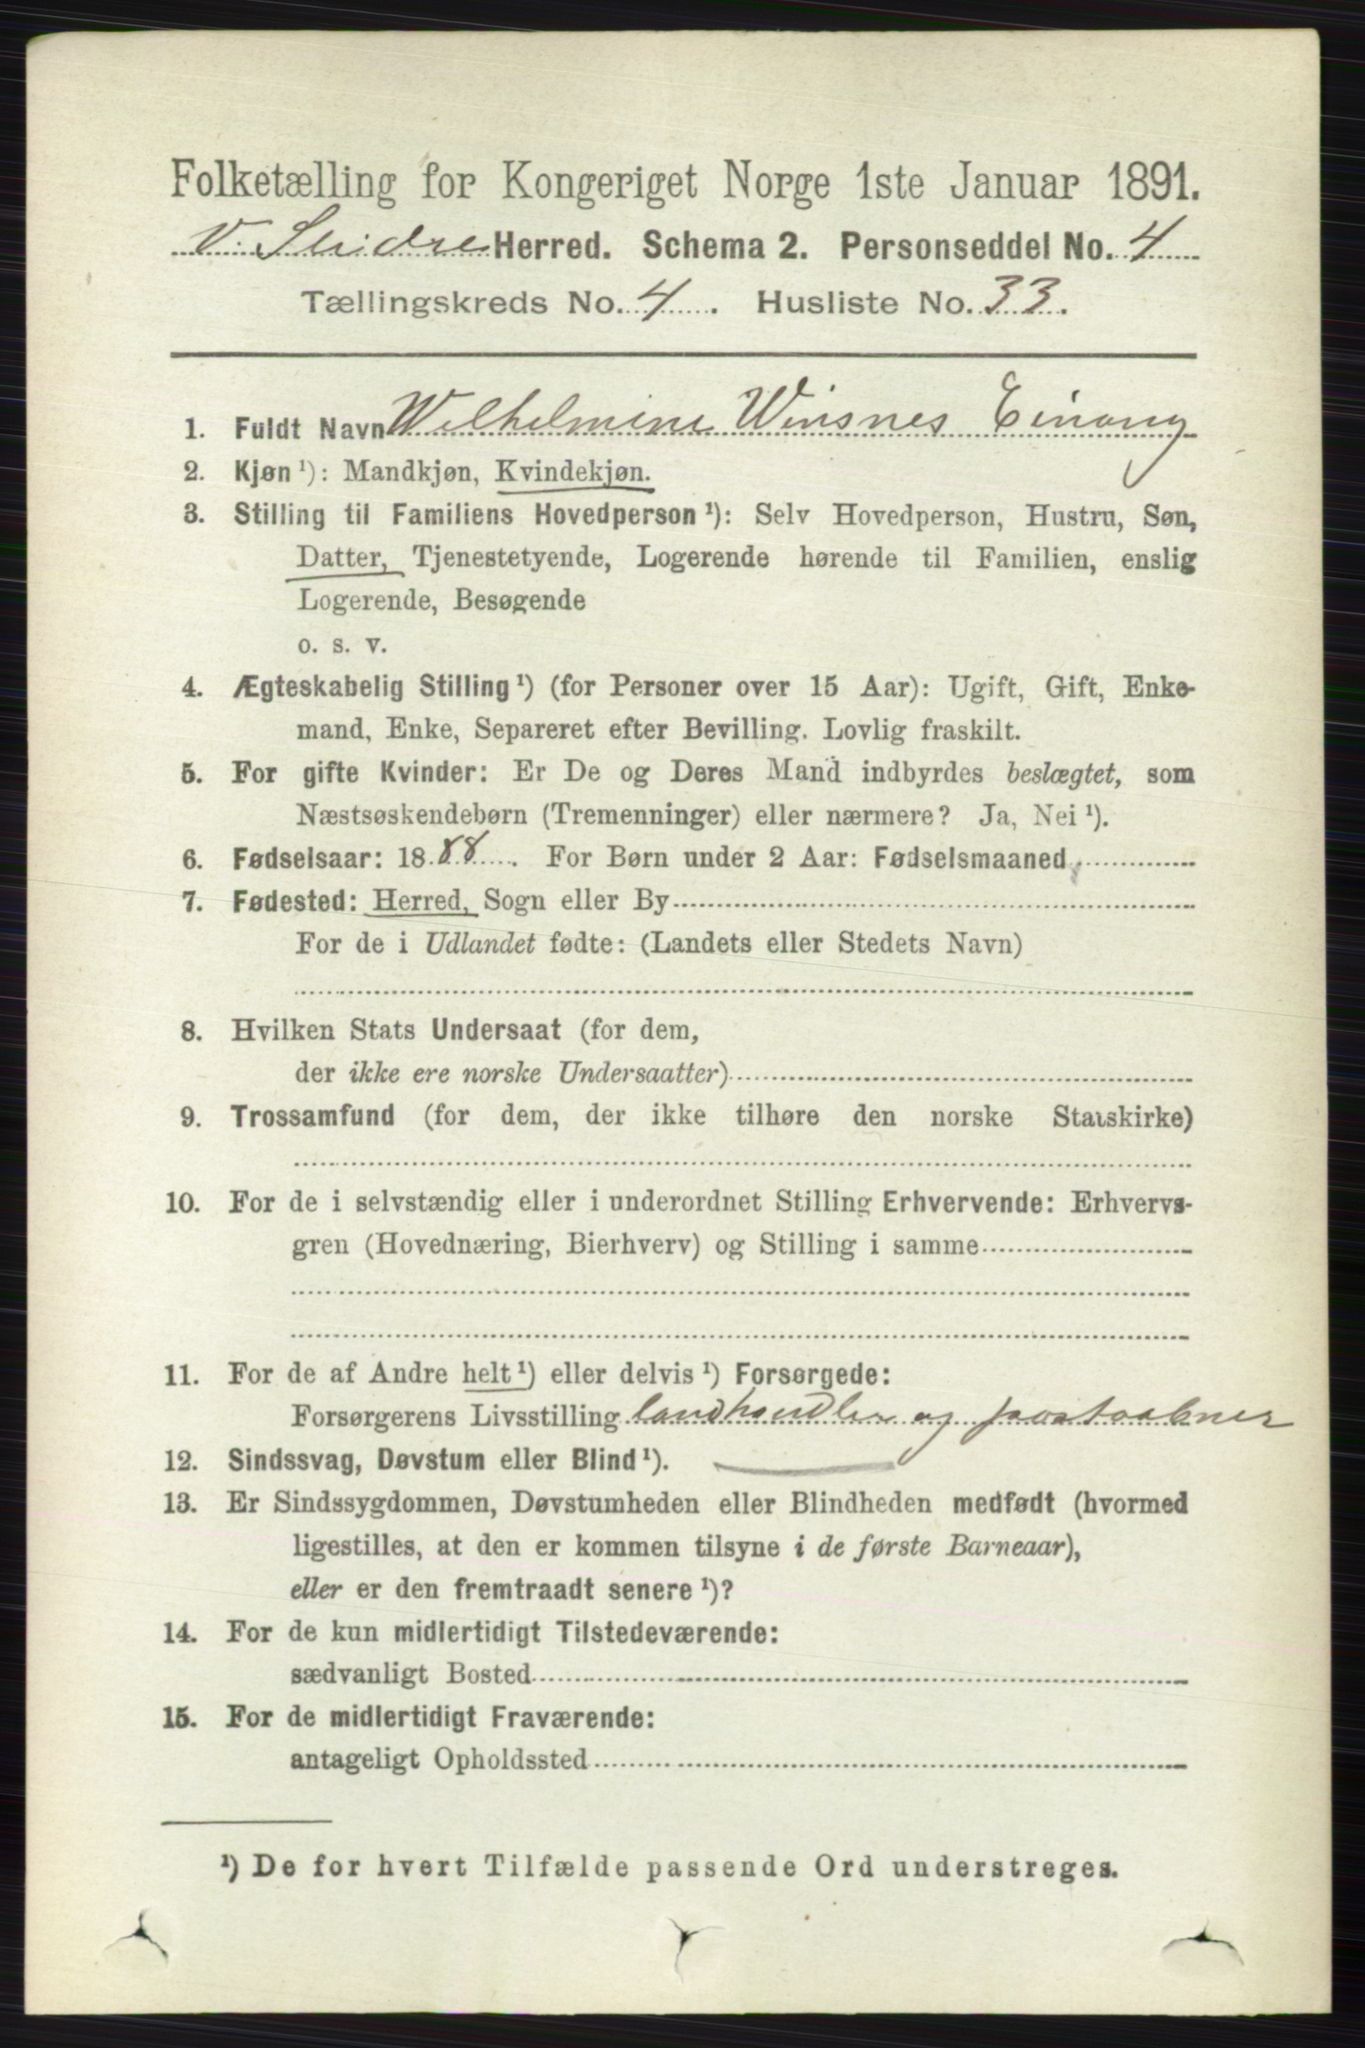 Folketælling for Kongeriget Norge 1ste Januar 1891.
V. Slidre Herred. Schema 2. Personseddel No. 4
Tællingskreds No. 4. Husliste No. 33.
1. Fuldt Navn Wilhelmine Winsnes Einang
2. Kjøn ¹): Mandkjøn, Kvindekjøn.
3. Stilling til Familiens Hovedperson ¹): Selv Hovedperson, Hustru, Søn,
Datter, Tjenestetyende, Logerende hørende til Familien, enslig
Logerende, Besøgende
o. s. v.
4. Ægteskabelig Stilling ¹) (for Personer over 15 Aar): Ugift, Gift, Enke-
mand, Enke, Separeret efter Bevilling. Lovlig fraskilt.
5. For gifte Kvinder: Er De og Deres Mand indbyrdes beslægtet, som
Næstsøskendebørn (Tremenninger) eller nærmere? Ja, Nei ¹).
6. Fødselsaar: 1888. For Børn under 2 Aar: Fødselsmaaned
7. Fødested: Herred, Sogn eller By
For de i Udlandet fødte: (Landets eller Stedets Navn)
8. Hvilken Stats Undersaat (for dem,
der ikke ere norske Undersaatter)
9. Trossamfund (for dem, der ikke tilhøre den norske Statskirke)
10. For de i selvstændig eller i underordnet Stilling Erhvervende: Erhvervs-
gren (Hovednæring, Bierhverv) og Stilling i samme
11. For de af Andre helt ¹) eller delvis ¹) Forsørgede:
Forsørgerens Livsstilling landhandler og postaabner
12. Sindssvag, Døvstum eller Blind ¹).
13. Er Sindssygdommen, Døvstumheden eller Blindheden medfødt (hvormed
ligestilles, at den er kommen tilsyne i de første Barneaar),
eller er den fremtraadt senere ¹)?
14. For de kun midlertidigt Tilstedeværende:
sædvanligt Bosted
15. For de midlertidigt Fraværende:
antageligt Opholdssted
¹) De for hvert Tilfælde passende Ord understreges.